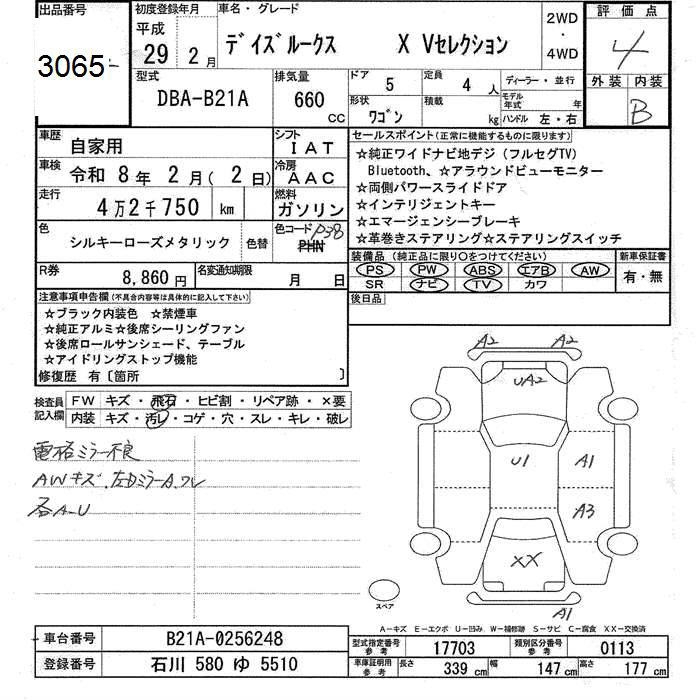 出品番号
3065
初度登録年月
平成
29 年 2 月
車名・グレード
デイズルークス X Vセレクション
2WD
・
4WD
評価点
4
外装 内装
B
型式
DBA-B21A
排気量
660 CC
ドア 5
定員 4 人
形状 ワゴン
積載 kg
ディーラー・並行
モデル年式 年
ハンドル 左・右
車歴 自家用
シフト IAT
車検 令和 8年 2月(2日)
冷房 AAC
走行 4万2千750 km
燃料 ガソリン
色 シルキーローズメタリック
色替
色コード PHN P38
R券 8,860円
名変通知期限 月 日
セールスポイント(正常に機能するものに限ります)
☆純正ワイドナビ地デジ(フルセグTV)
Bluetooth、☆アラウンドビューモニター
☆両側パワースライドドア
☆インテリジェントキー
☆エマージェンシーブレーキ
☆革巻きステアリング☆ステアリングスイッチ
装備品(純正品に限り○をつけてください)
PS PW ABS エアB AW
SR ナビ TV カワ
新車保証書
有・無
後日品
注意事項申告欄(不具合内容等は具体的に記入して下さい)
☆ブラック内装色 ☆禁煙車
☆純正アルミ☆後席シーリングファン
☆後席ロールサンシェード、テーブル
☆アイドリングストップ機能
修復歴 有〔箇所 〕
検査員記入欄
FW キズ・飛石・ヒビ割・リペア跡・×要
内装 キズ・汚レ・コゲ・穴・スレ・キレ・破レ
電格ミラー不良
AWキズ.左DミラーA.ワレ
各A-U
A2 A2
UA2
U1
A1
A3
XX
A1
スペア
A-キズ E-エクボ U-凹み W-補修跡 S-サビ C-腐食 XX-交換済
車台番号 B21A-0256248
登録番号 石川 580 ゆ 5510
型式指定番号参考 17703
類別区分番号参考 0113
車庫証明用参考
長さ 339 cm
幅 147 cm
高さ 177 cm